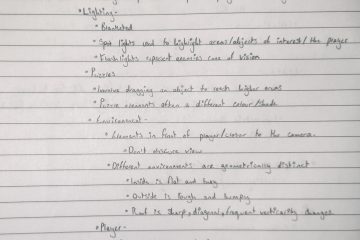 • Lighting -
• Blanketed
• Spot lights used to highlight areas/objects of interest/the player
• Flashlights represent enemies cone of vision
• Puzzles
• Involve dragging an object to reach higher areas
• Puzzle elements often a different colour/shade
• Environment -
• Elements in front of player/closer to the camera
• Don't obscure view
• Different environments are geometrically distinct
• Inside is flat and boxy
• Outside is rough and bumpy
• Roof is sharp, diagonal, frequent verticality changes
• Player -